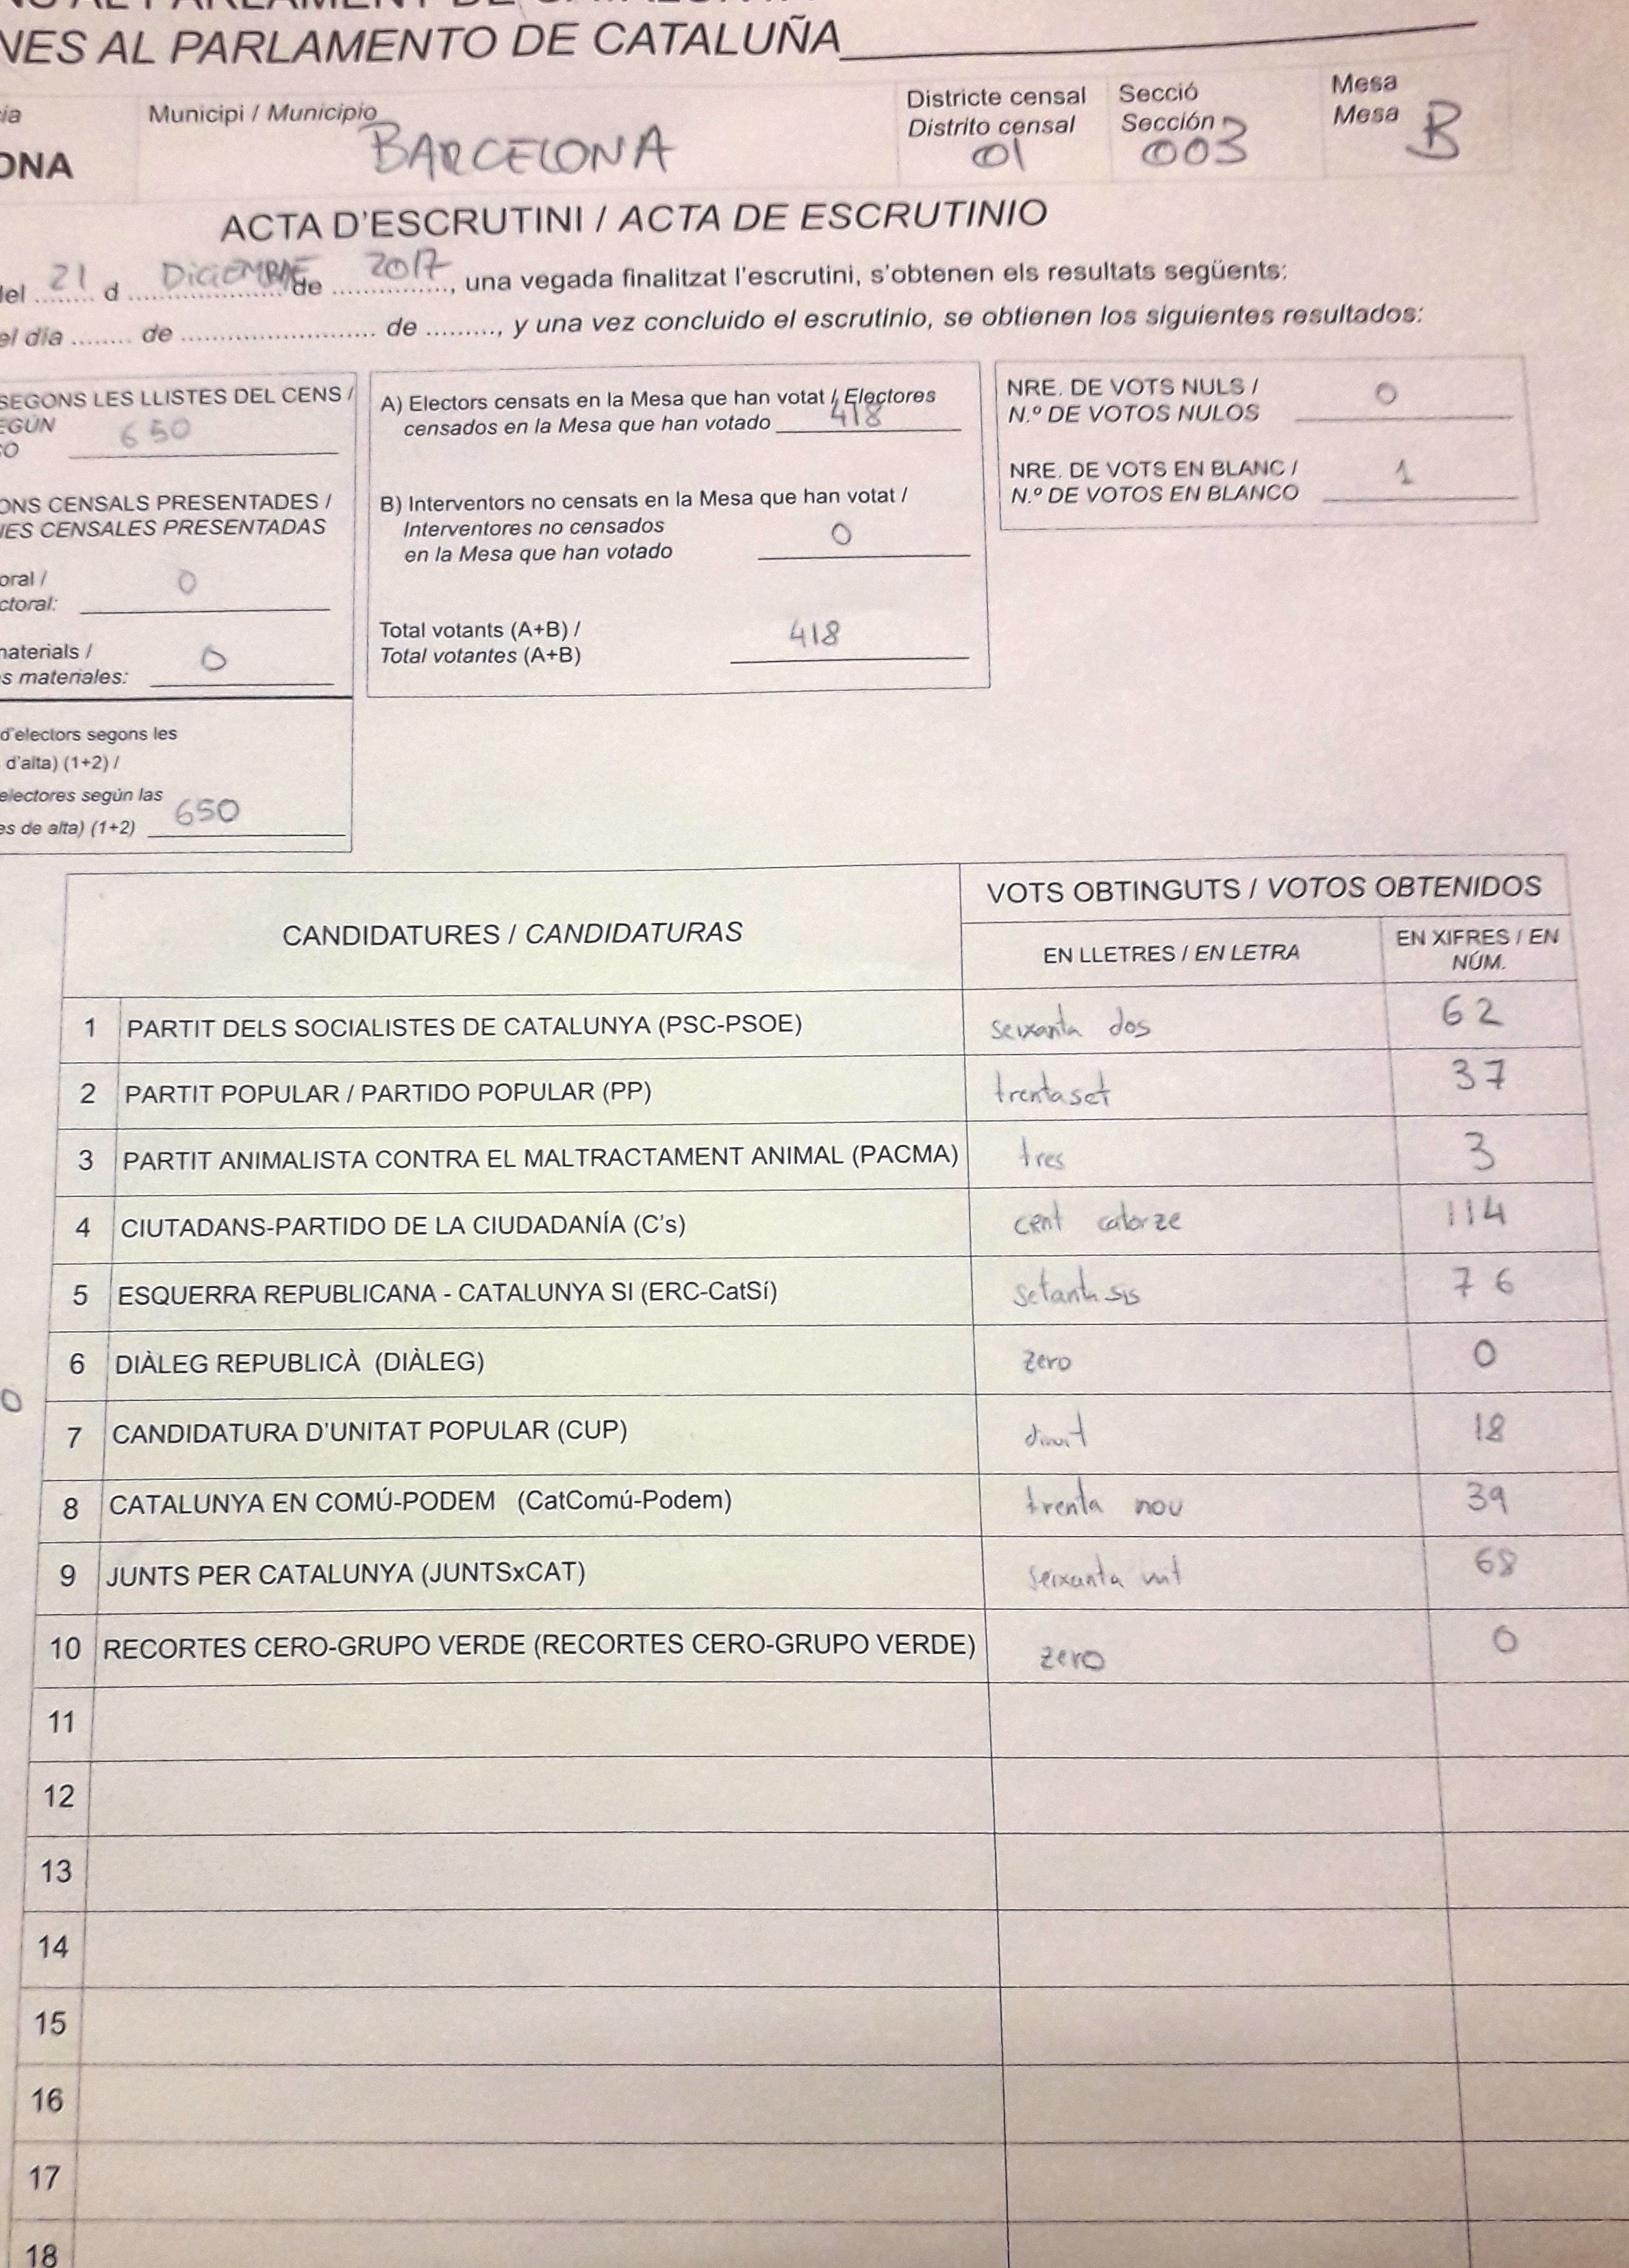 NES AL PARLAMENTO DE CATALUÑA
Municipi / Municipio
BARCELONA
Districte censal
Distrito censal
01
Secció
Sección
003
Mesa
Mesa
B
ONA
ACTA D'ESCRUTINI / ACTA DE ESCRUTINIO
del 21 d DiciEMBRE de 2017, una vegada finalitzat l'escrutini, s'obtenen els resultats següents:
el día ........ de ........................ de ........., y una vez concluido el escrutinio, se obtienen los siguientes resultados:
SEGONS LES LLISTES DEL CENS /
EGÚN
CO 650
ONS CENSALS PRESENTADES /
NES CENSALES PRESENTADAS
oral /
ctoral: 0
materials /
s materiales: 0
d'electors segons les
d'alta) (1+2) /
electores según las
es de alta) (1+2) 650
A) Electors censats en la Mesa que han votat / Electores
censados en la Mesa que han votado 418
B) Interventors no censats en la Mesa que han votat /
Interventores no censados
en la Mesa que han votado 0
Total votants (A+B) /
Total votantes (A+B) 418
NRE. DE VOTS NULS /
N.º DE VOTOS NULOS 0
NRE. DE VOTS EN BLANC /
N.º DE VOTOS EN BLANCO 1
CANDIDATURES / CANDIDATURAS
VOTS OBTINGUTS / VOTOS OBTENIDOS
EN LLETRES / EN LETRA
EN XIFRES / EN
NÚM.
1 PARTIT DELS SOCIALISTES DE CATALUNYA (PSC-PSOE) seixanta dos 62
2 PARTIT POPULAR / PARTIDO POPULAR (PP) trentaset 37
3 PARTIT ANIMALISTA CONTRA EL MALTRACTAMENT ANIMAL (PACMA) tres 3
4 CIUTADANS-PARTIDO DE LA CIUDADANÍA (C's) cent catorze 114
5 ESQUERRA REPUBLICANA - CATALUNYA SI (ERC-CatSí) setanta sis 76
6 DIÀLEG REPUBLICÀ (DIÀLEG) zero 0
7 CANDIDATURA D'UNITAT POPULAR (CUP) divuit 18
8 CATALUNYA EN COMÚ-PODEM (CatComú-Podem) trenta nou 39
9 JUNTS PER CATALUNYA (JUNTSxCAT) seixanta vuit 68
10 RECORTES CERO-GRUPO VERDE (RECORTES CERO-GRUPO VERDE) zero 0
11
12
13
14
15
16
17
18